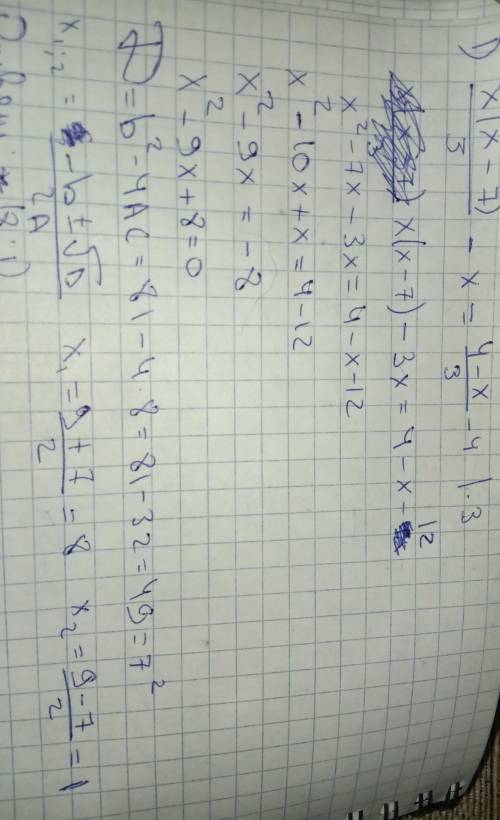 1) x(x-7)/3 - x = 4-x/3 - 4 |·3
x(x-7) - 3x = 4 - x - 12
x² - 7x - 3x = 4 - x - 12
x² - 10x + x = 4 - 12
x² - 9x = -8
x² - 9x + 8 = 0
D = b² - 4AC = 81 - 4·8 = 81 - 32 = 49 = 7²
x₁;₂ = -b ± √D/2A x₁ = 9+7/2 = 8 x₂ = 9-7/2 = 1
(8;1)